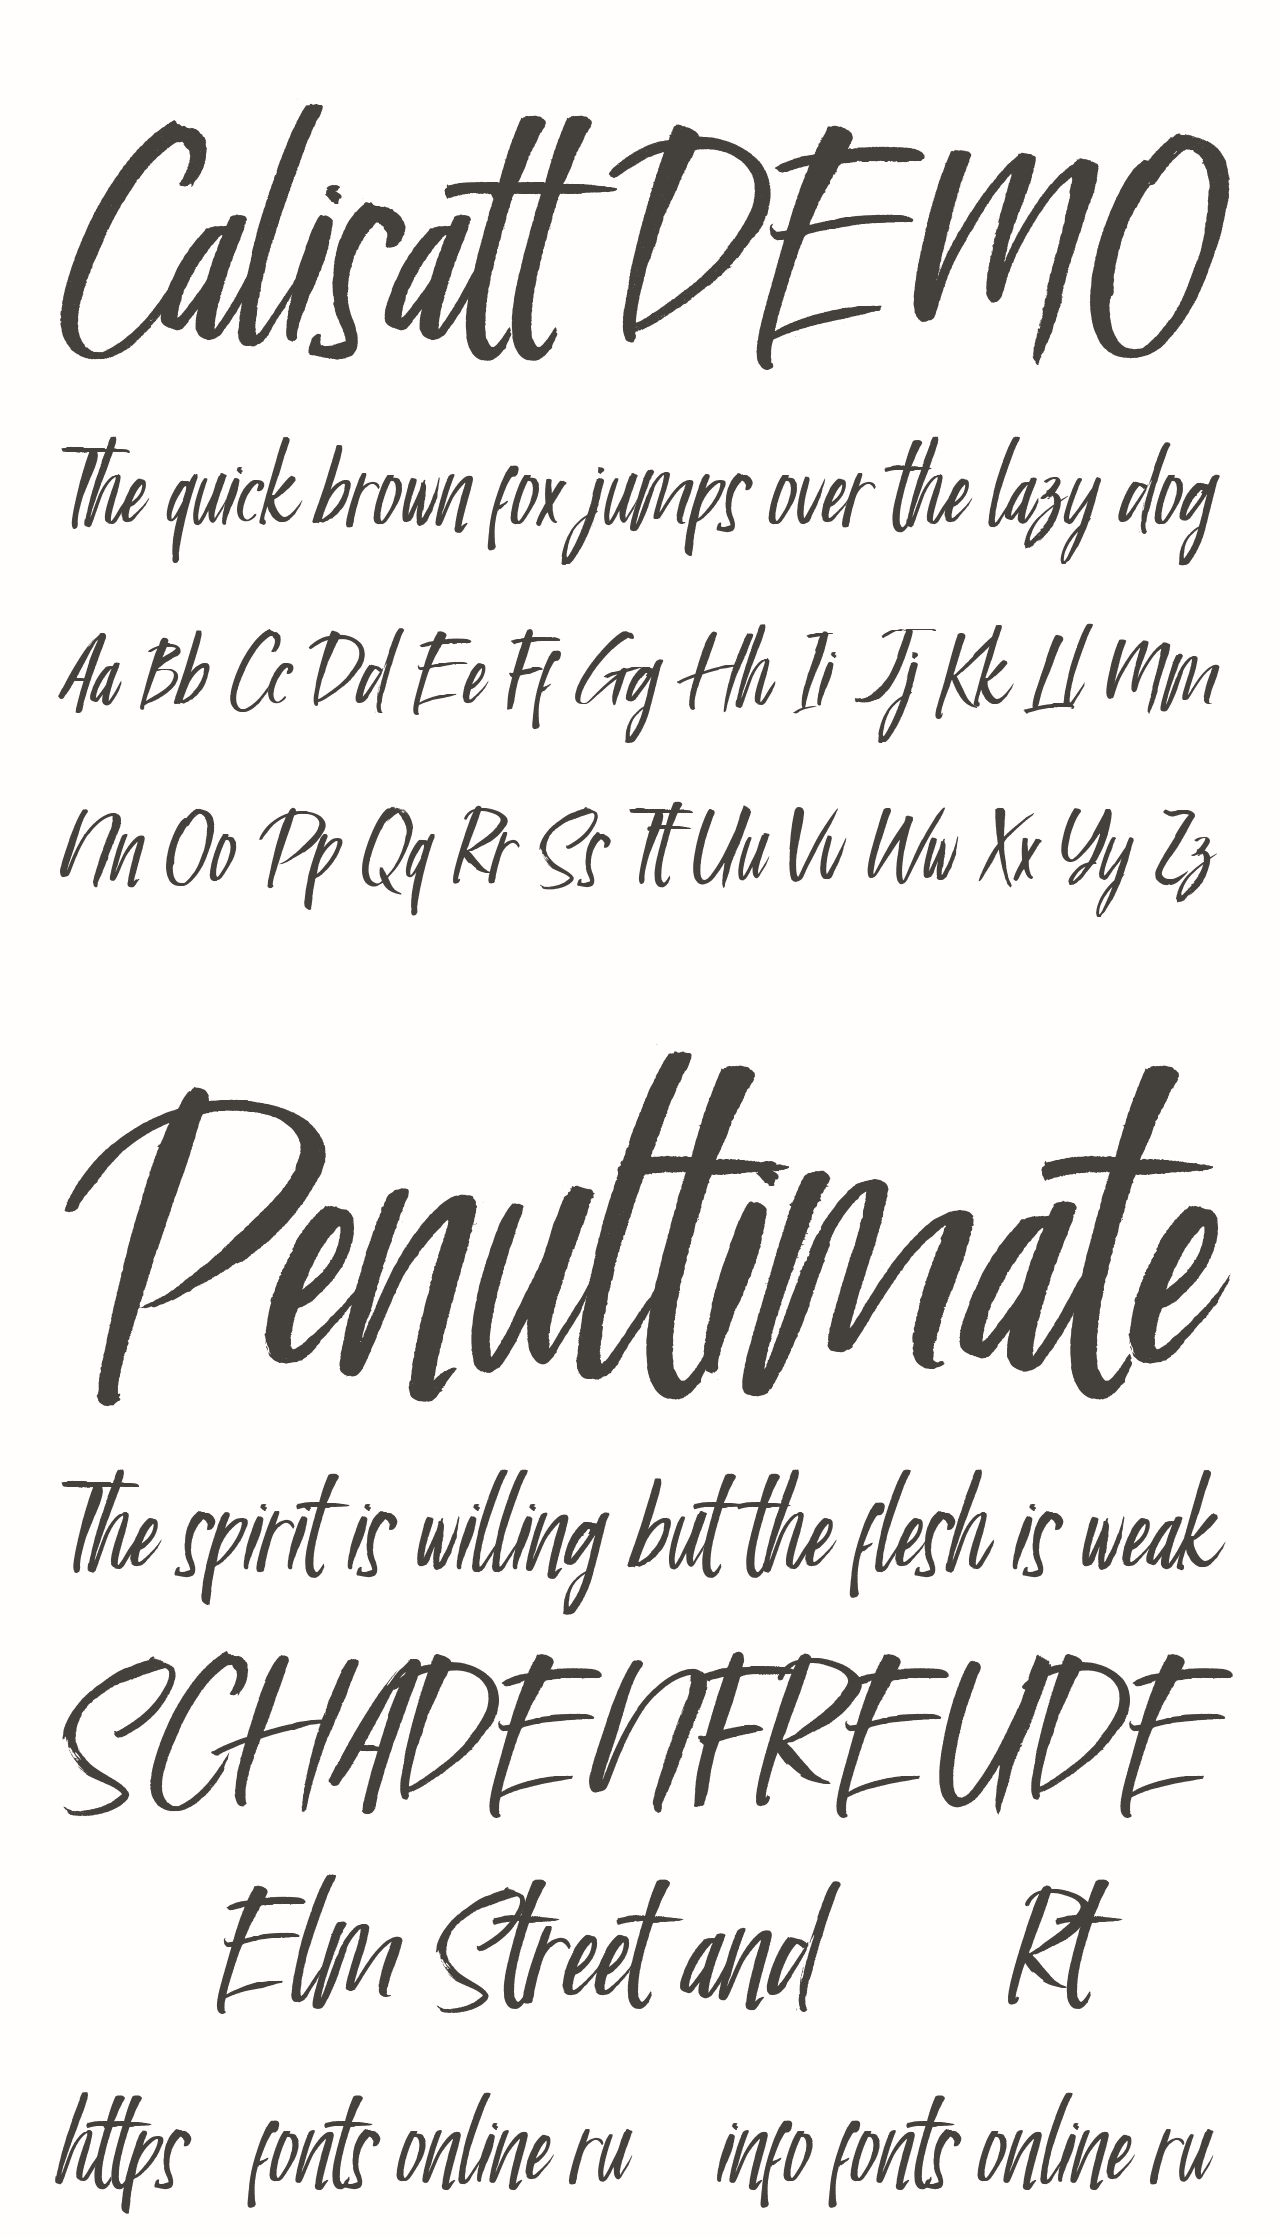 Calisatt DEMO
The quick brown fox jumps over the lazy dog
Aa Bb Cc Dd Ee Ff Gg Hh Ii Jj Kk Ll Mm
Nn Oo Pp Qq Rr Ss Tt Uu Vv Ww Xx Yy Zz
Penultimate
The spirit is willing but the flesh is weak
SCHADENFREUDE
Elm Street and Rt
https fonts online ru info fonts online ru